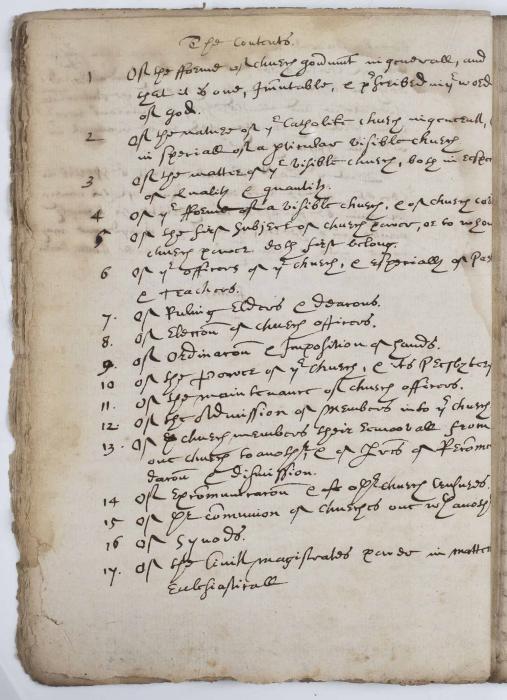 The Contents.
1 Of the fforme of Church gouermt in generall, and
that it is one, Immutable, & p̱scribed in yᵉ word
of god.
2 Of the nature of yᵉ Catholike church in generall,
in speciall of a pticular visible church
3 Of the matter of yᵉ visible church, both in respect
of Quality & quantity.
4 Of yᵉ fforme of a visible church, & of church
5 Of the first subject of church power, or to whom
church power doth first belong.
6 Of yᵉ officers of yᵉ church, & especially of Pas
& Teachers.
7. Of Ruling Elders & deacons.
8. Of Election of church officers.
9. Of Ordination & Imposition of hands.
10 Of the Power of yᵉ church, & its Presbytery
11. Of the maintenance of church officers.
12. Of the Admission of Members into yᵉ church
13. Of church members their Remoovall from
one church to another, & of lrēs of Recomē
dation & dismission.
14 Of Excommunication & other church Censures.
15 Of yᵉ communion of churches one wᵗʰ anoth
16 Of Synods.
17. Of the Civill magistrates power in matter
Ecclesiasticall